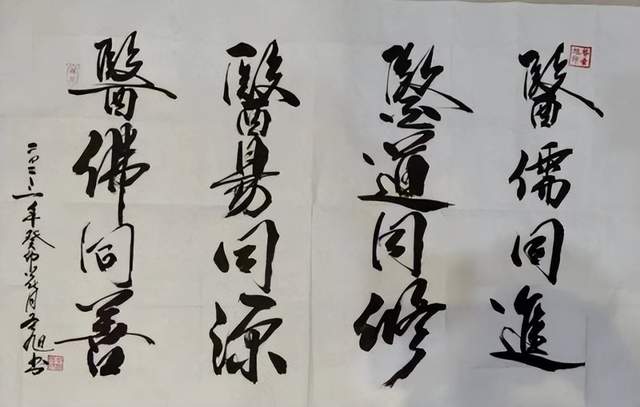 醫儒同進
毉道同修
醫易同源
醫佛同善
二〇二三年癸卯月旭書